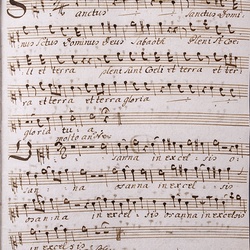 Sanctus Sanctus Domi
nus Sanctus Dominus Deus Sabaoth Pleni sunt Coe
li et terra pleni sunt Coeli et terra et ter
ra et terra et terra gloria
gloria tu a
molto andte
Osanna in excelsis o
sanna osanna in excelsis
osanna in excelsis osanna in excelsis
in excelsis